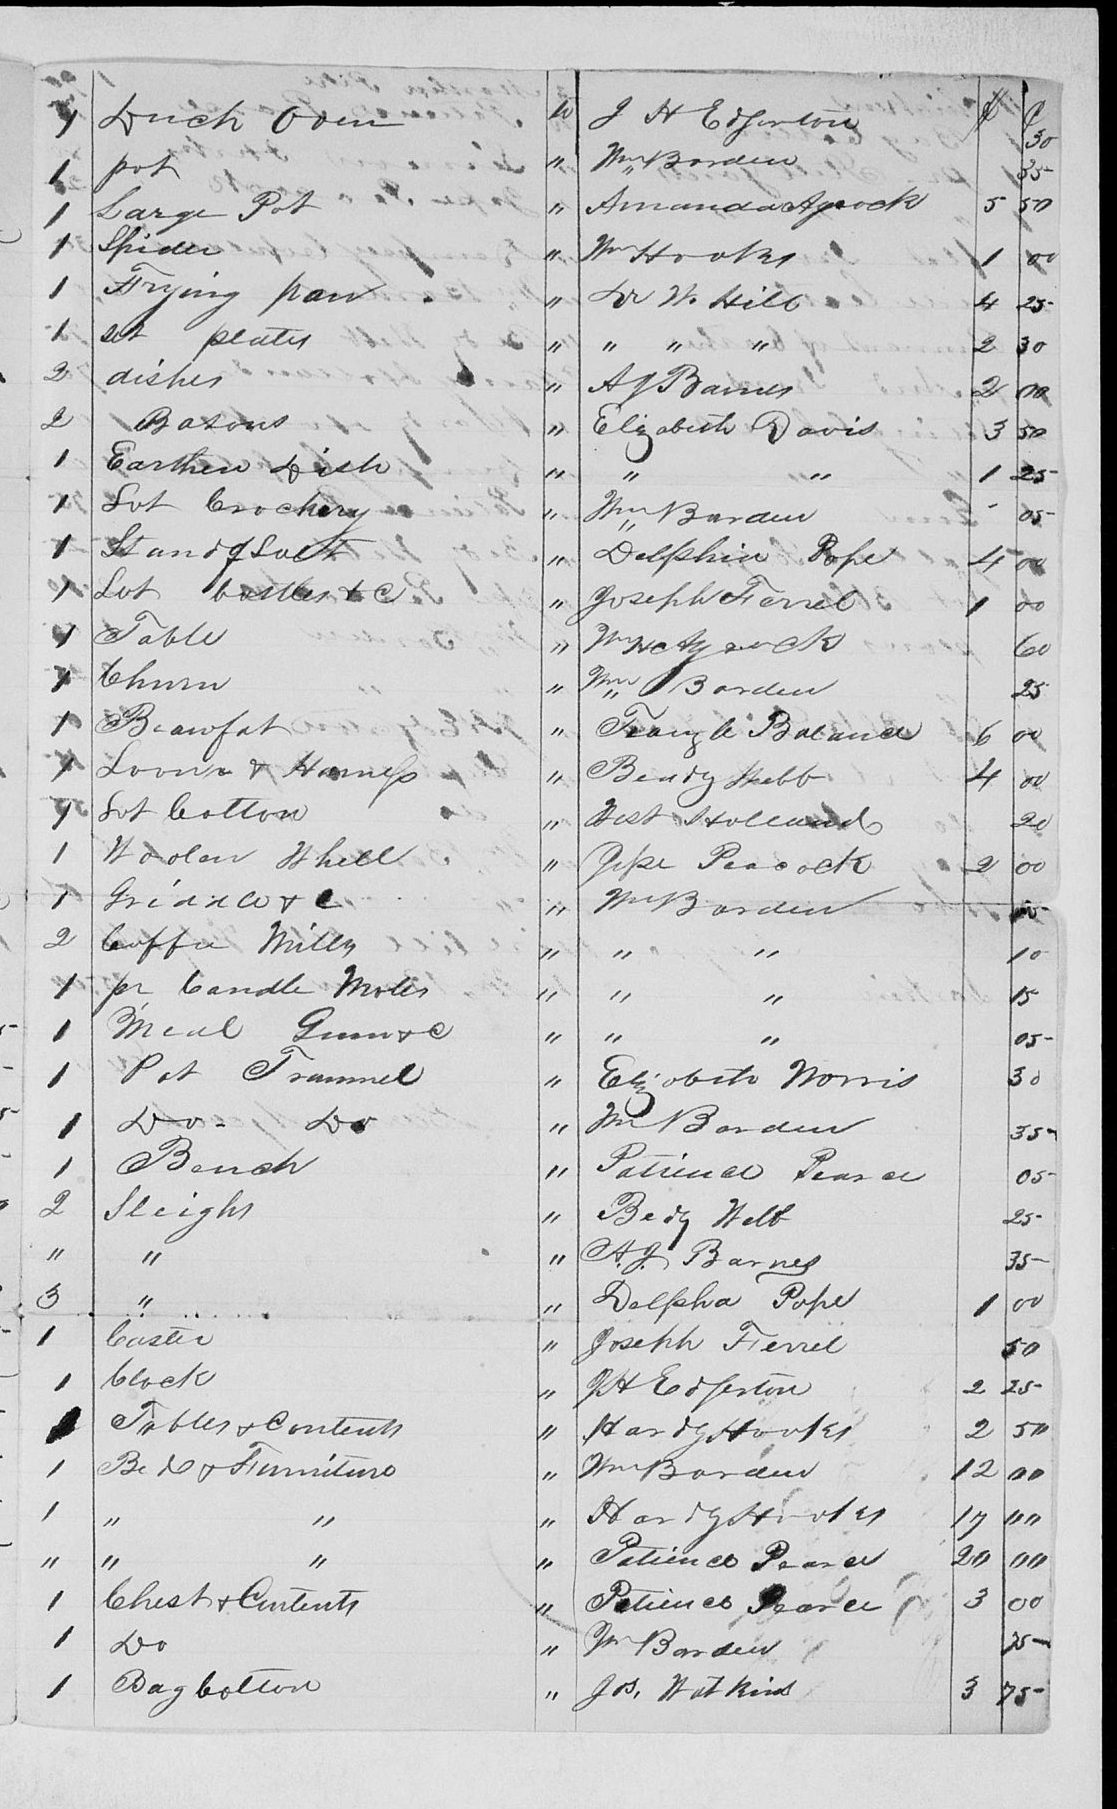 $ ¢
1 Duch Oven to J H Edgerton 30
1 pot " Wm Borden 35
1 Large Pot " Amanda Aycock 5 50
1 Spider " Wm Hooks 1 00
1 Frying pan " Dr W. Hill 4 25
1 set plates " " " " 2 30
2 dishes " A J Barnes 2 00
2 Basons " Elizabeth Davis 3 50
1 Earthen Dish " " " 1 25
1 Lot Crockery " Wm Borden - 05
1 Stand & Salt " Delphia Pope 4 00
1 Lot Castles & C " Joseph Ferrel 1 00
1 Table " Wm H Aycock 60
1 Churn " Wm Borden 25
1 Beawfat " Teangle Balance 6 00
1 Loom & Harness " Bendy Webb 4 00
1 Lot Cotton " West Holland 20
1 Woolen Whell " Jesse Peacock 2 00
1 Griddle & C " Wm Borden
2 Coffee Mills " " " 10
1 pr Candle Moles " " " 15
1 Meal Gum & C " " " 05
1 Pot Trammel " Elizabeth Norris 30
1 Do - Do " Wm Borden 35
1 Bench " Patience Pearce 05
2 Sleighs " Bedy Webb 25
" " " A. J. Barnes 35
3 " " Delpha Pope 1 00
1 Caster " Joseph Ferrel 50
1 Clock " J H Edgerton 2 25
Tables & Contents " Hardy Hooks 2 50
1 Bed & Furniture " Wm Borden 12 00
1 " " " Hardy Hooks 17 00
" " " " Patience Pearce 20 00
1 Chest & Contents " Patience Pearce 3 00
1 Do " Wm Borden 75
1 Bag Cotton " Jos. Watkins 3 75